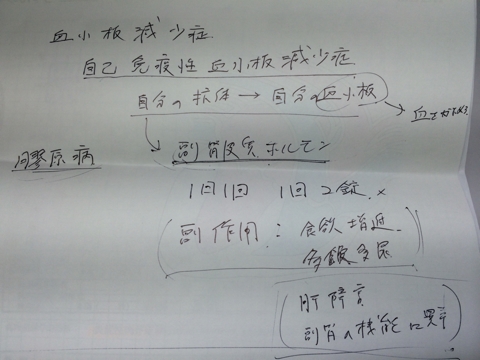 血小板減少症
自己免疫性血小板減少症
自分の抗体→自分の血小板
→血を
膠原病
副腎皮質ホルモン
1回1回 1回2錠 ×
副作用:食欲増進
多飲多尿
肝障害
副腎の機能に異